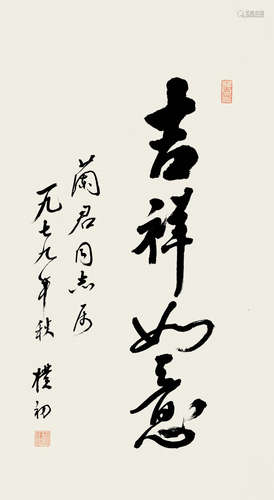 吉祥如意
蘭君同志属
一九七九年秋 樸初